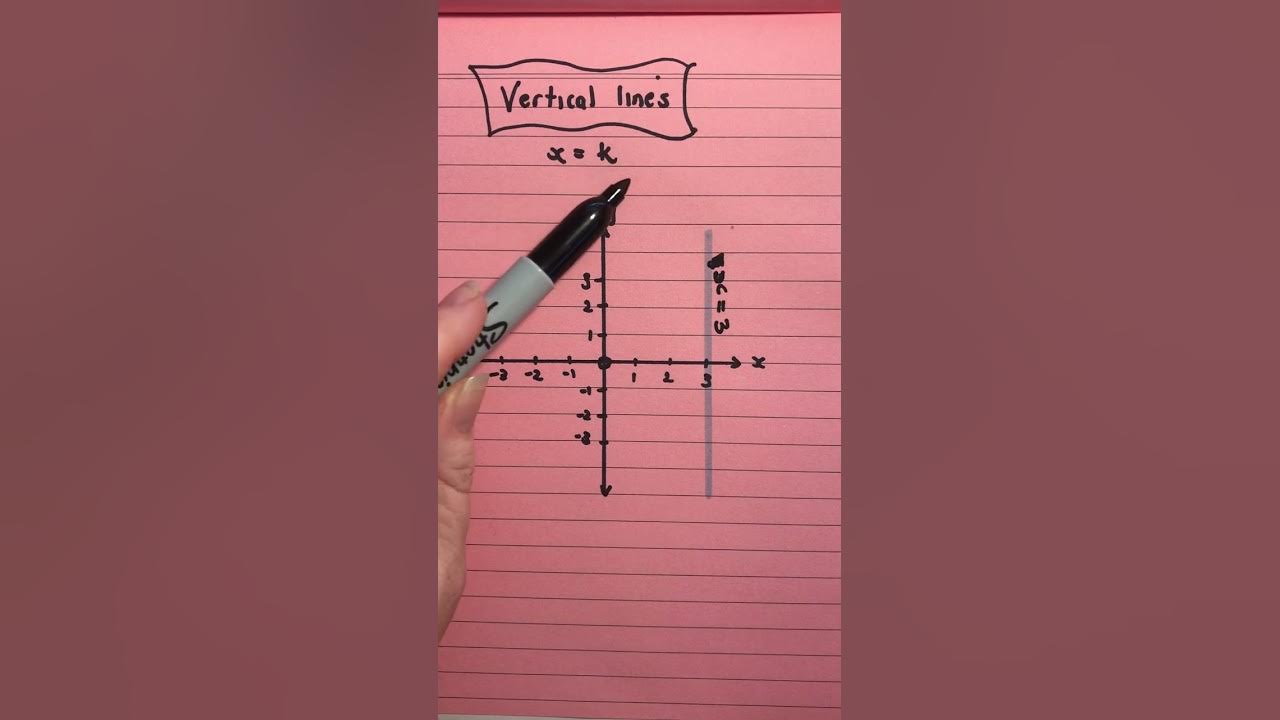 Vertical lines
x = k
3
2
1
x = 3
-3 -2 -1 1 2 3 x
-1
-2
-3